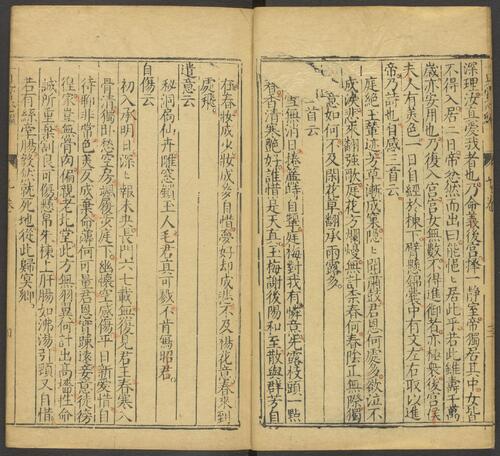 深理汝真愛我者也乃命義後宮擇一靜室帝獨居其中女皆
不得入居二日帝忿然而出曰能悒々居此乎若此雖壽千萬
歲亦安用也乃復入宮宮女無數不得進御者亦極衆後宮侯
夫人有美色一日自經於棟下臂懸錦囊中有文左右取以進
帝乃詩也自感三首云
庭絕玉輦迹芳草漸成窠隱々聞簫鼓君恩何處多欲泣不
成淚悲來翻強歌庭花方爛熳無計柰春何春陰正無際獨
意如何不及閑花草翻承雨露多
二首云
雪無消日捲簾時自顰庭梅對我有憐意先露枝頭一點
春香清寒艷好誰惜是天真玉梅謝後陽和至散與群芳自
在春妝成云妝成多自惜夢好却成悲不及楊花意春來到
處飛
遣意云
秘洞扃仙卉雕窓鎖玉人毛君真可戮不肯寫昭君
自傷云
初入承明日深々報未央長門六七載無復見君王春寒入
骨清獨卧愁空房颯履步庭下幽懷空感傷平日新愛惜自
待聊非常色美反成棄命薄何可量君恩實踈遠妾意徒徬
徨家豈無骨肉偏親老北堂此方無羽翼何計出高牆性命
誠所重棄割良可傷懸帛朱棟上肝腸如沸湯引頸又自惜
若有絲牽腸毅然就死地從此歸冥鄉